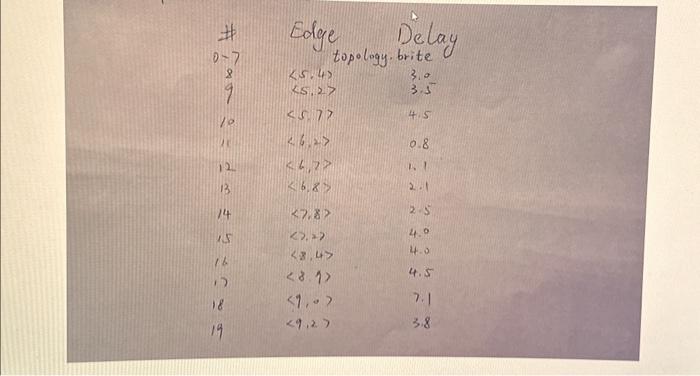 # Edge Delay
0-7 topology.brite
8 <5,4> 3.0
9 <5,2> 3.5
10 <5,7> 4.5
11 <6,2> 0.8
12 <6,7> 1.1
13 <6,8> 2.1
14 <7,8> 2.5
15 4.0
16 <8,4> 4.0
17 <8,9> 4.5
18 <9,0> 7.1
19 <9,2> 3.8